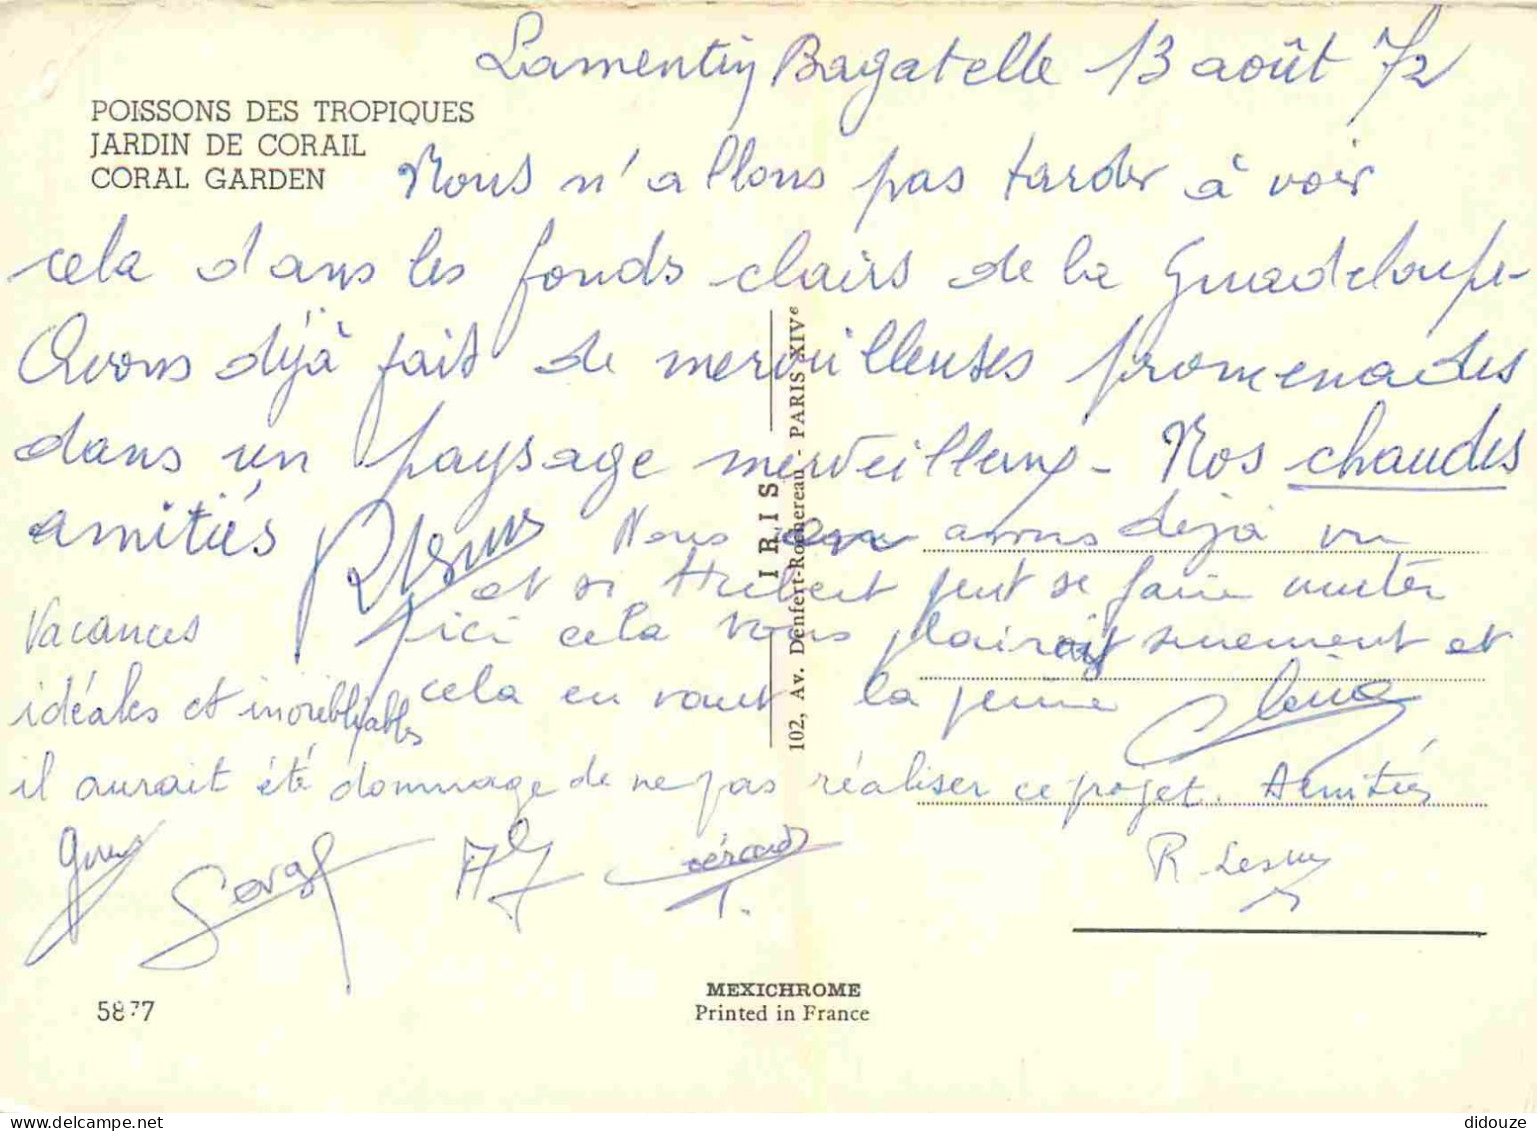 Lamentin Bagatelle 13 août 72
POISSONS DES TROPIQUES
JARDIN DE CORAIL
CORAL GARDEN
Nous n'allons pas tarder à voir
cela dans les fonds clairs de la Guadeloupe-
Avons déjà fait de merveilleuses promenades
dans un paysage merveilleux - Nos chaudes
amitiés
Nous avons déjà vu
et si Hubert peut se faire muter
ici cela vous plairait surement et
cela en vaut la peine
Vacances
idéales et inoubliables
il aurait été dommage de ne pas réaliser ce projet. Amitiés
Gérard
R. Lesur
IRIS
102, Av. Denfert-Rochereau - PARIS XIVe
5877
MEXICHROME
Printed in France
delcampe.net
didouze